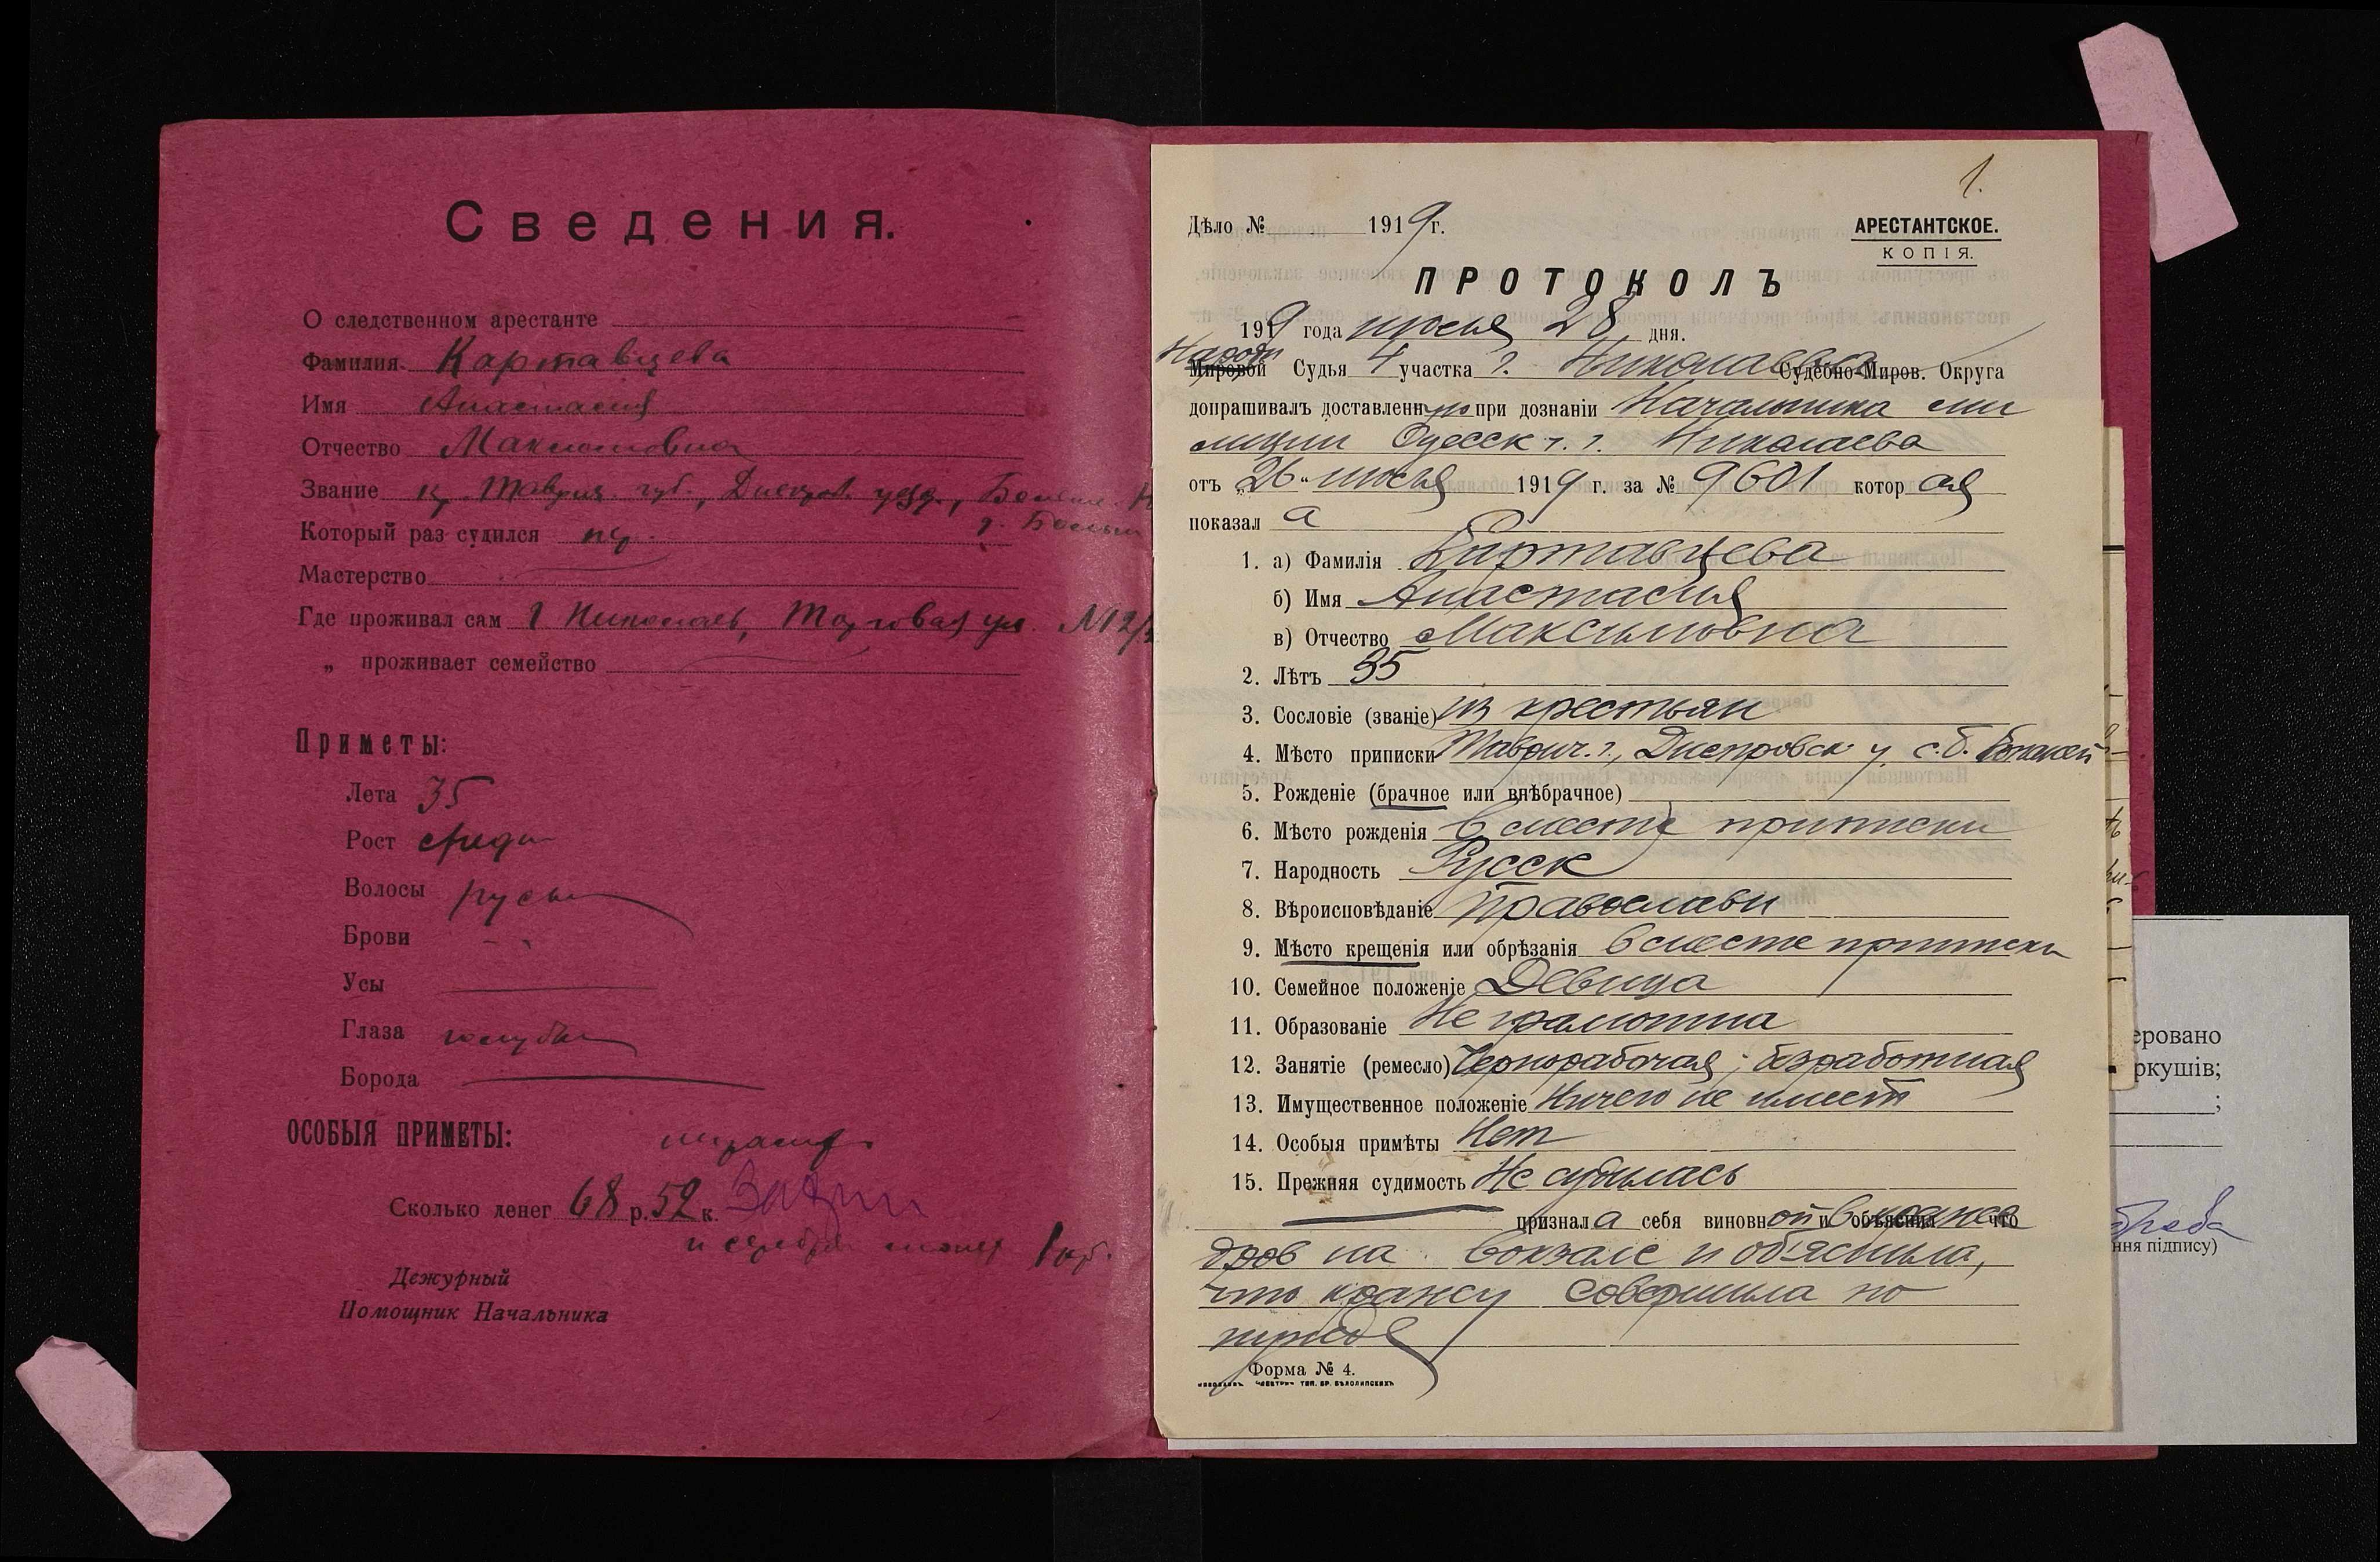 Сведения.
О следственном арестанте
Фамилия Картавцева
Имя Анастасия
Отчество Максимовна
Звание кр. Таврич. губ., Днепров. уезд.,
Который раз судился
Мастерство
Где проживал сам г. Николаев, Торговая ул. №
„ проживает семейство
Приметы:
Лета 35
Рост средн
Волосы русы
Брови
Усы
Глаза голубы
Борода
ОСОБЫЯ ПРИМЕТЫ:
Сколько денег 68 р. 52 к.
и серебр. монет 1
Дежурный
Помощник Начальника
1.
Дѣло № 1919 г.
АРЕСТАНТСКОЕ.
КОПІЯ.
ПРОТОКОЛЪ
1919 года июля 28 дня.
Народн
Мировой Судья 4 участка г. Николаева Судебно-Миров. Округа
допрашивалъ доставленн при дознаніи Начальника ми
лиции Одесск. г. Николаева
отъ „26" июля 1919 г. за № 9601 котор ая
показал а
1. а) Фамилія Картавцева
б) Имя Анастасия
в) Отчество Максимовна
2. Лѣтъ 35
3. Сословіе (званіе) из крестьян
4. Мѣсто приписки Таврич. г., Днепровск у. с. Б.
5. Рожденіе (брачное или внѣбрачное)
6. Мѣсто рожденія В месте приписки
7. Народность Русск
8. Вѣроисповѣданіе Православн
9. Мѣсто крещенія или обрѣзанія в месте приписки
10. Семейное положеніе Девица
11. Образованіе Неграмотна
12. Занятіе (ремесло) Чернорабочая; безработная
13. Имущественное положеніе Ничего не имеет
14. Особыя примѣты Нет
15. Прежняя судимость Не судилась
признал а себя виновн ой в краже
дров на вокзале и объяснила,
что кражу совершила по
нужде
Форма № 4.
еровано
ркушів;
;
ння підпису)